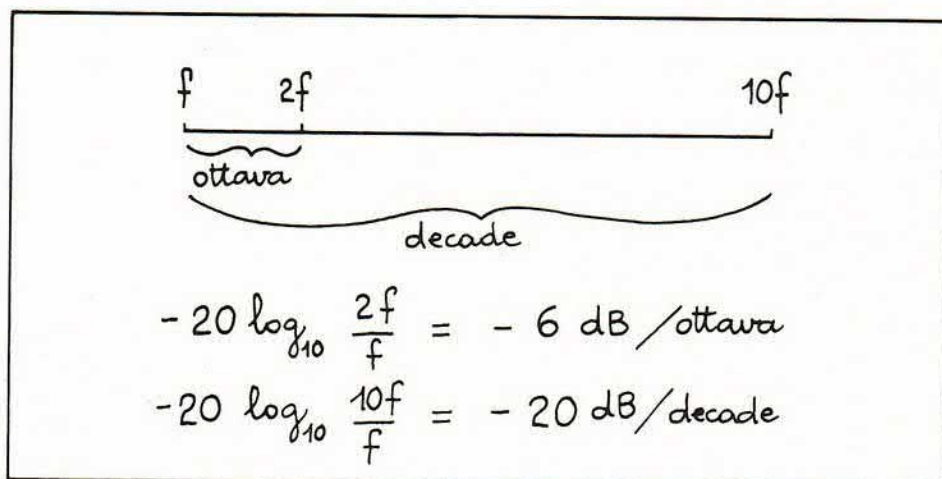 f 2f 10f
ottava
decade
-20 log₁₀ 2f/f = - 6 dB /ottava
-20 log₁₀ 10f/f = - 20 dB/decade